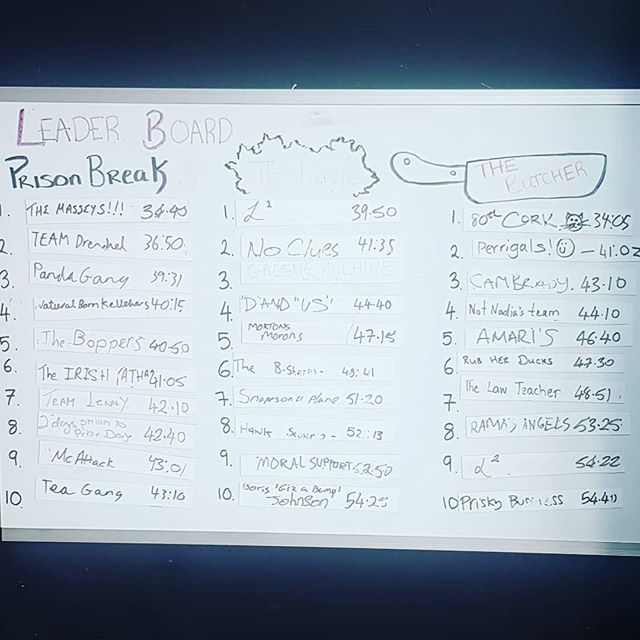 LEADER BOARD
PRISON BREAK
1. THE MASSEYS!!! 34:45
2. TEAM Drenched 36:50
3. Panda Gang 39:31
4. Natural Born Kellehers 40:15
5. The Boppers 40:50
6. The IRISH 41:05
7. TEAM LENNY 42.10
8. 2 days prior to Prior Day 42:40
9. McAttack 43:01
10. Tea Gang 43:10
1. L² 39:50
2. No Clues 41:35
3. GREENE MACHINE
4. "D AND "US" 44:40
5. MORTONS morons 47.15
6. The B-Sharps 48:41
7. Snapes on a Plane 51:20
8. HANK 52:13
9. MORAL SUPPORT 52:50
10. Boris 'Giz a Bomp' Johnson 54:25
THE BUTCHER
1. 80th CORK 34:05
2. Perrigals! 41:02
3. CAMBRADY. 43.10
4. Not Nadia's team 44.10
5. AMARI'S 46.40
6. RUB HER DUCKS 47.30
7. The Law Teacher 48:51
8. RAMA'S ANGELS 53:25
9. L² 54:22
10 Prisky Business 54:40